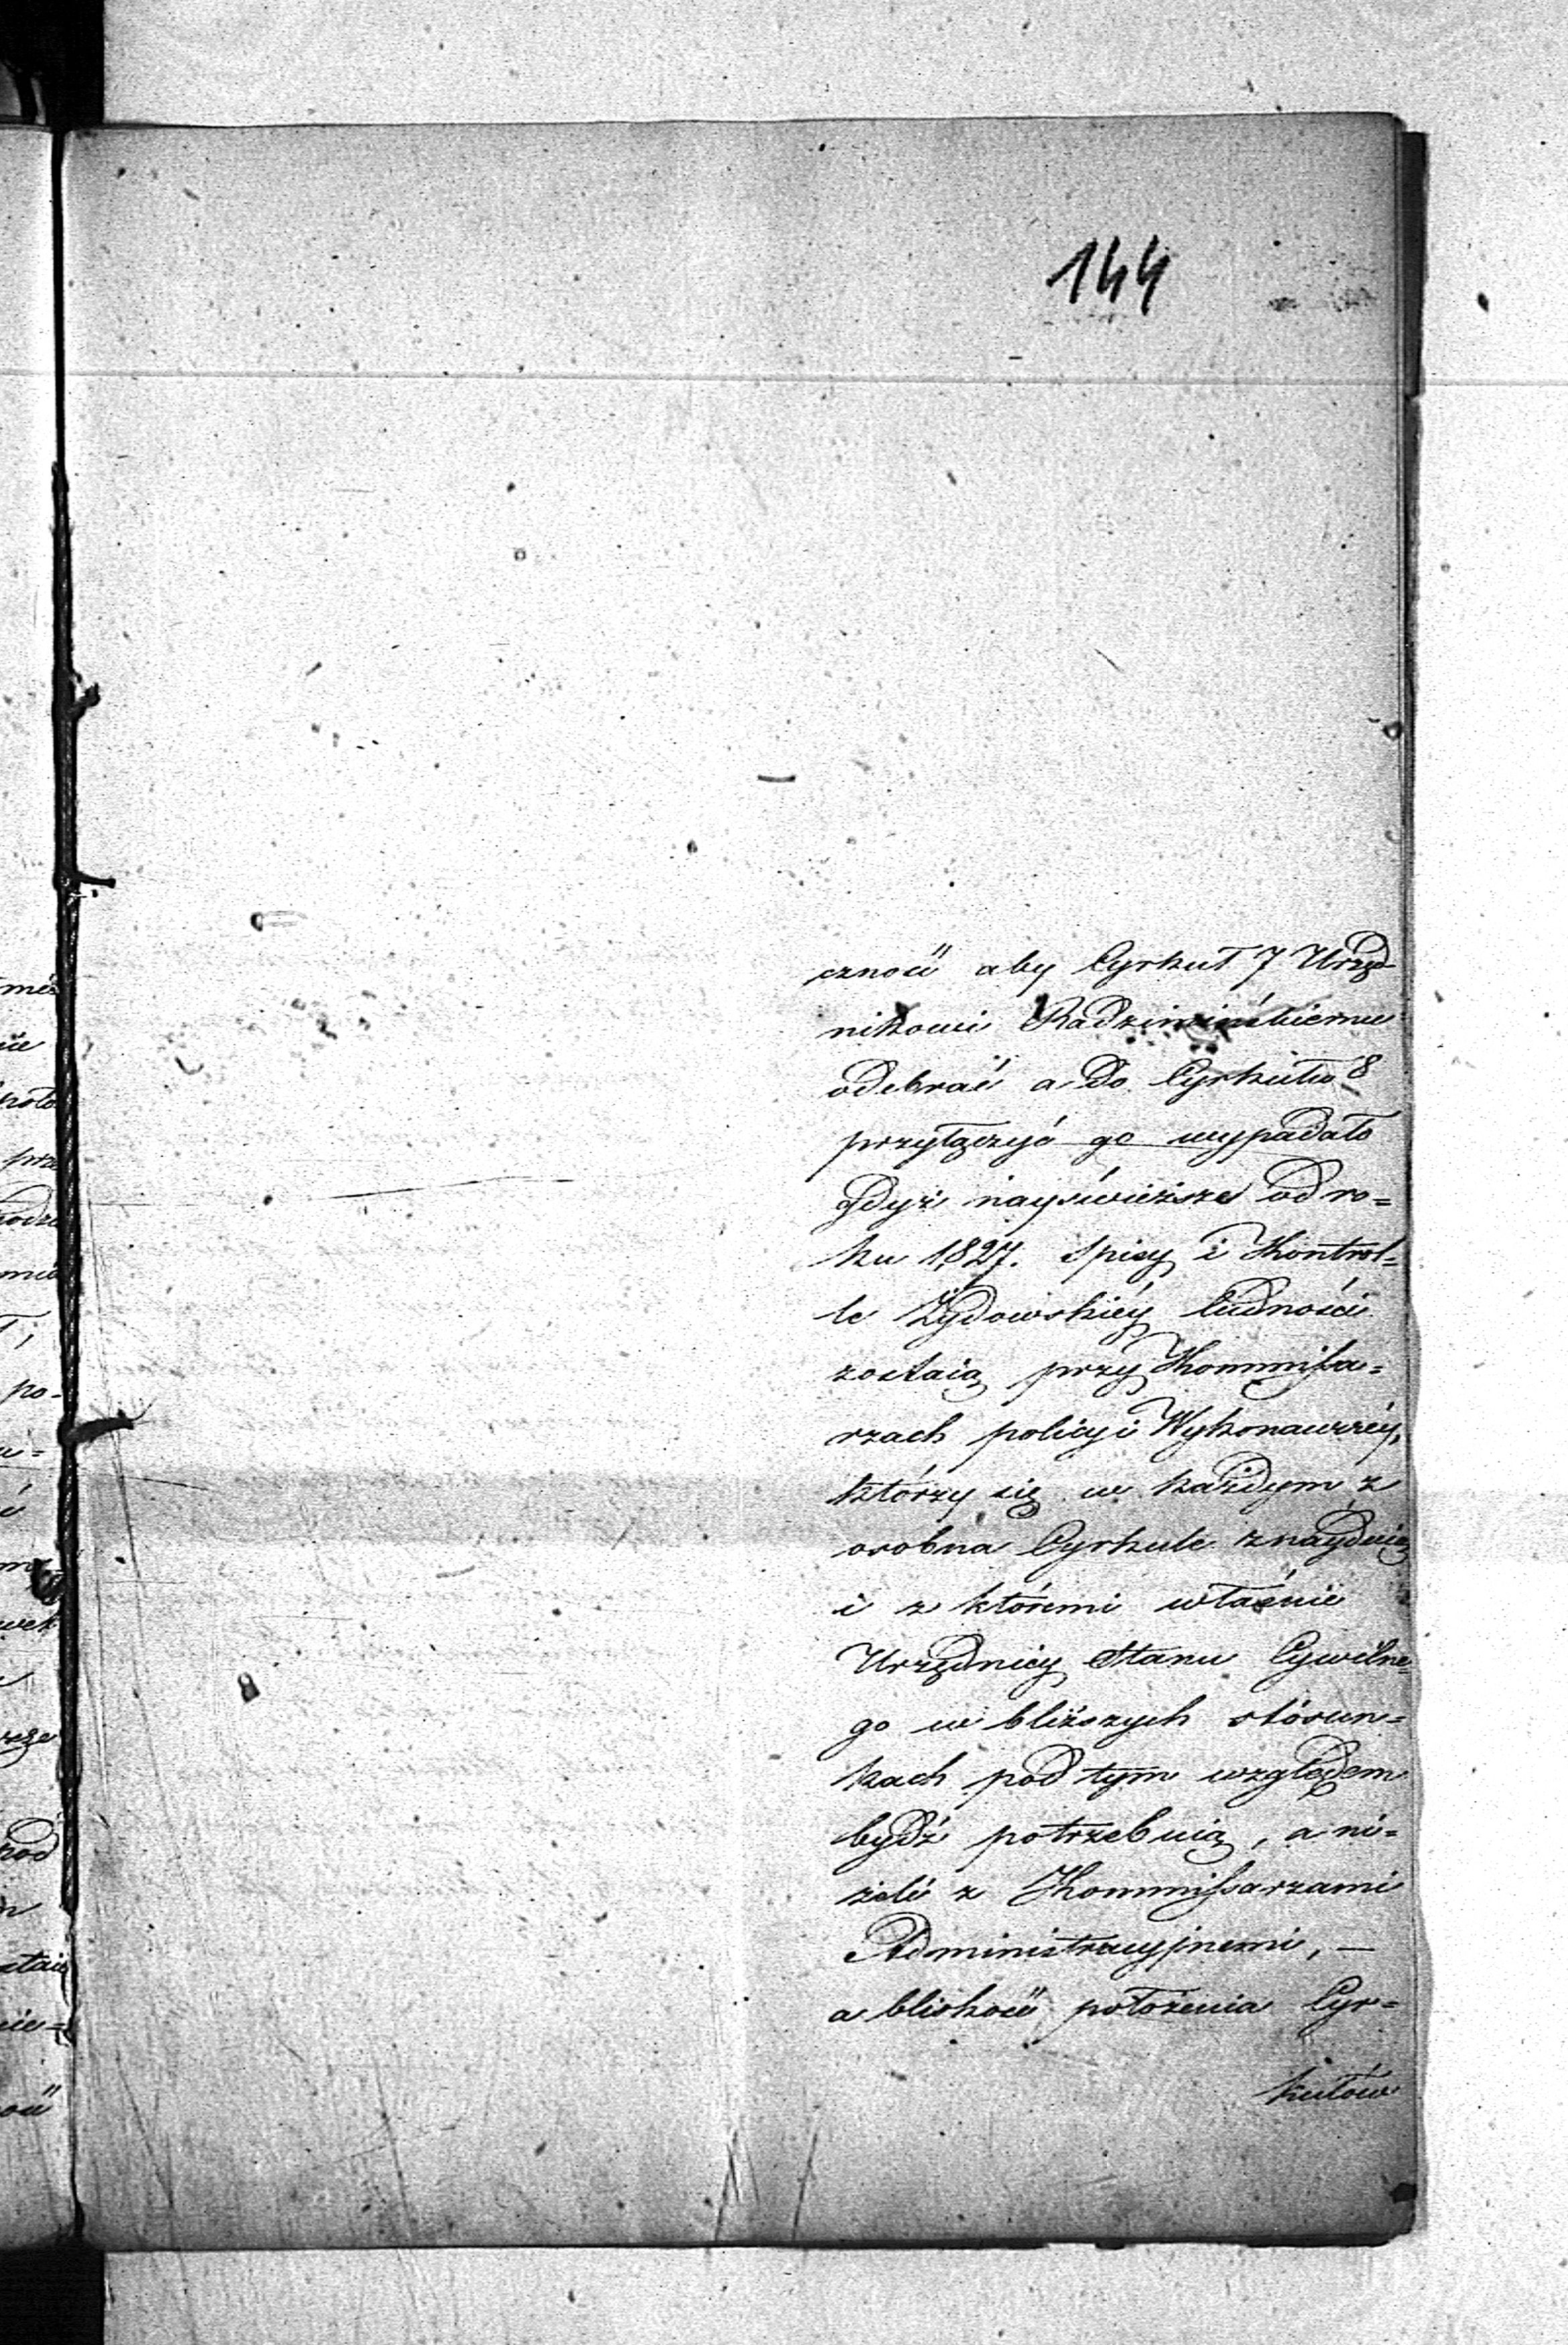 144
czność aby Cyrkuł 7 Urzęd-
nikowi Radzimińskiemu
odebrać a do Cyrkułu 8
przyłączyć go wypadało
gdyż nayświeższe od ro=
ku 1827. spisy i Kontrol=
le Żydowskiéy ludności
zostaią przy Kommissa=
rzach policyi Wykonawczéy,
którzy się w każdym z
osobna Cyrkule znayduią
i z któremi właśnie
Urzędnicy Stanu Cywilne=
go w bliższych stósun=
kach pod tym względem
bydź potrzebuią, a ni=
żeli z Kommissarzami
Administracyjnemi, —
a bliskość położenia Cyr=
kułów